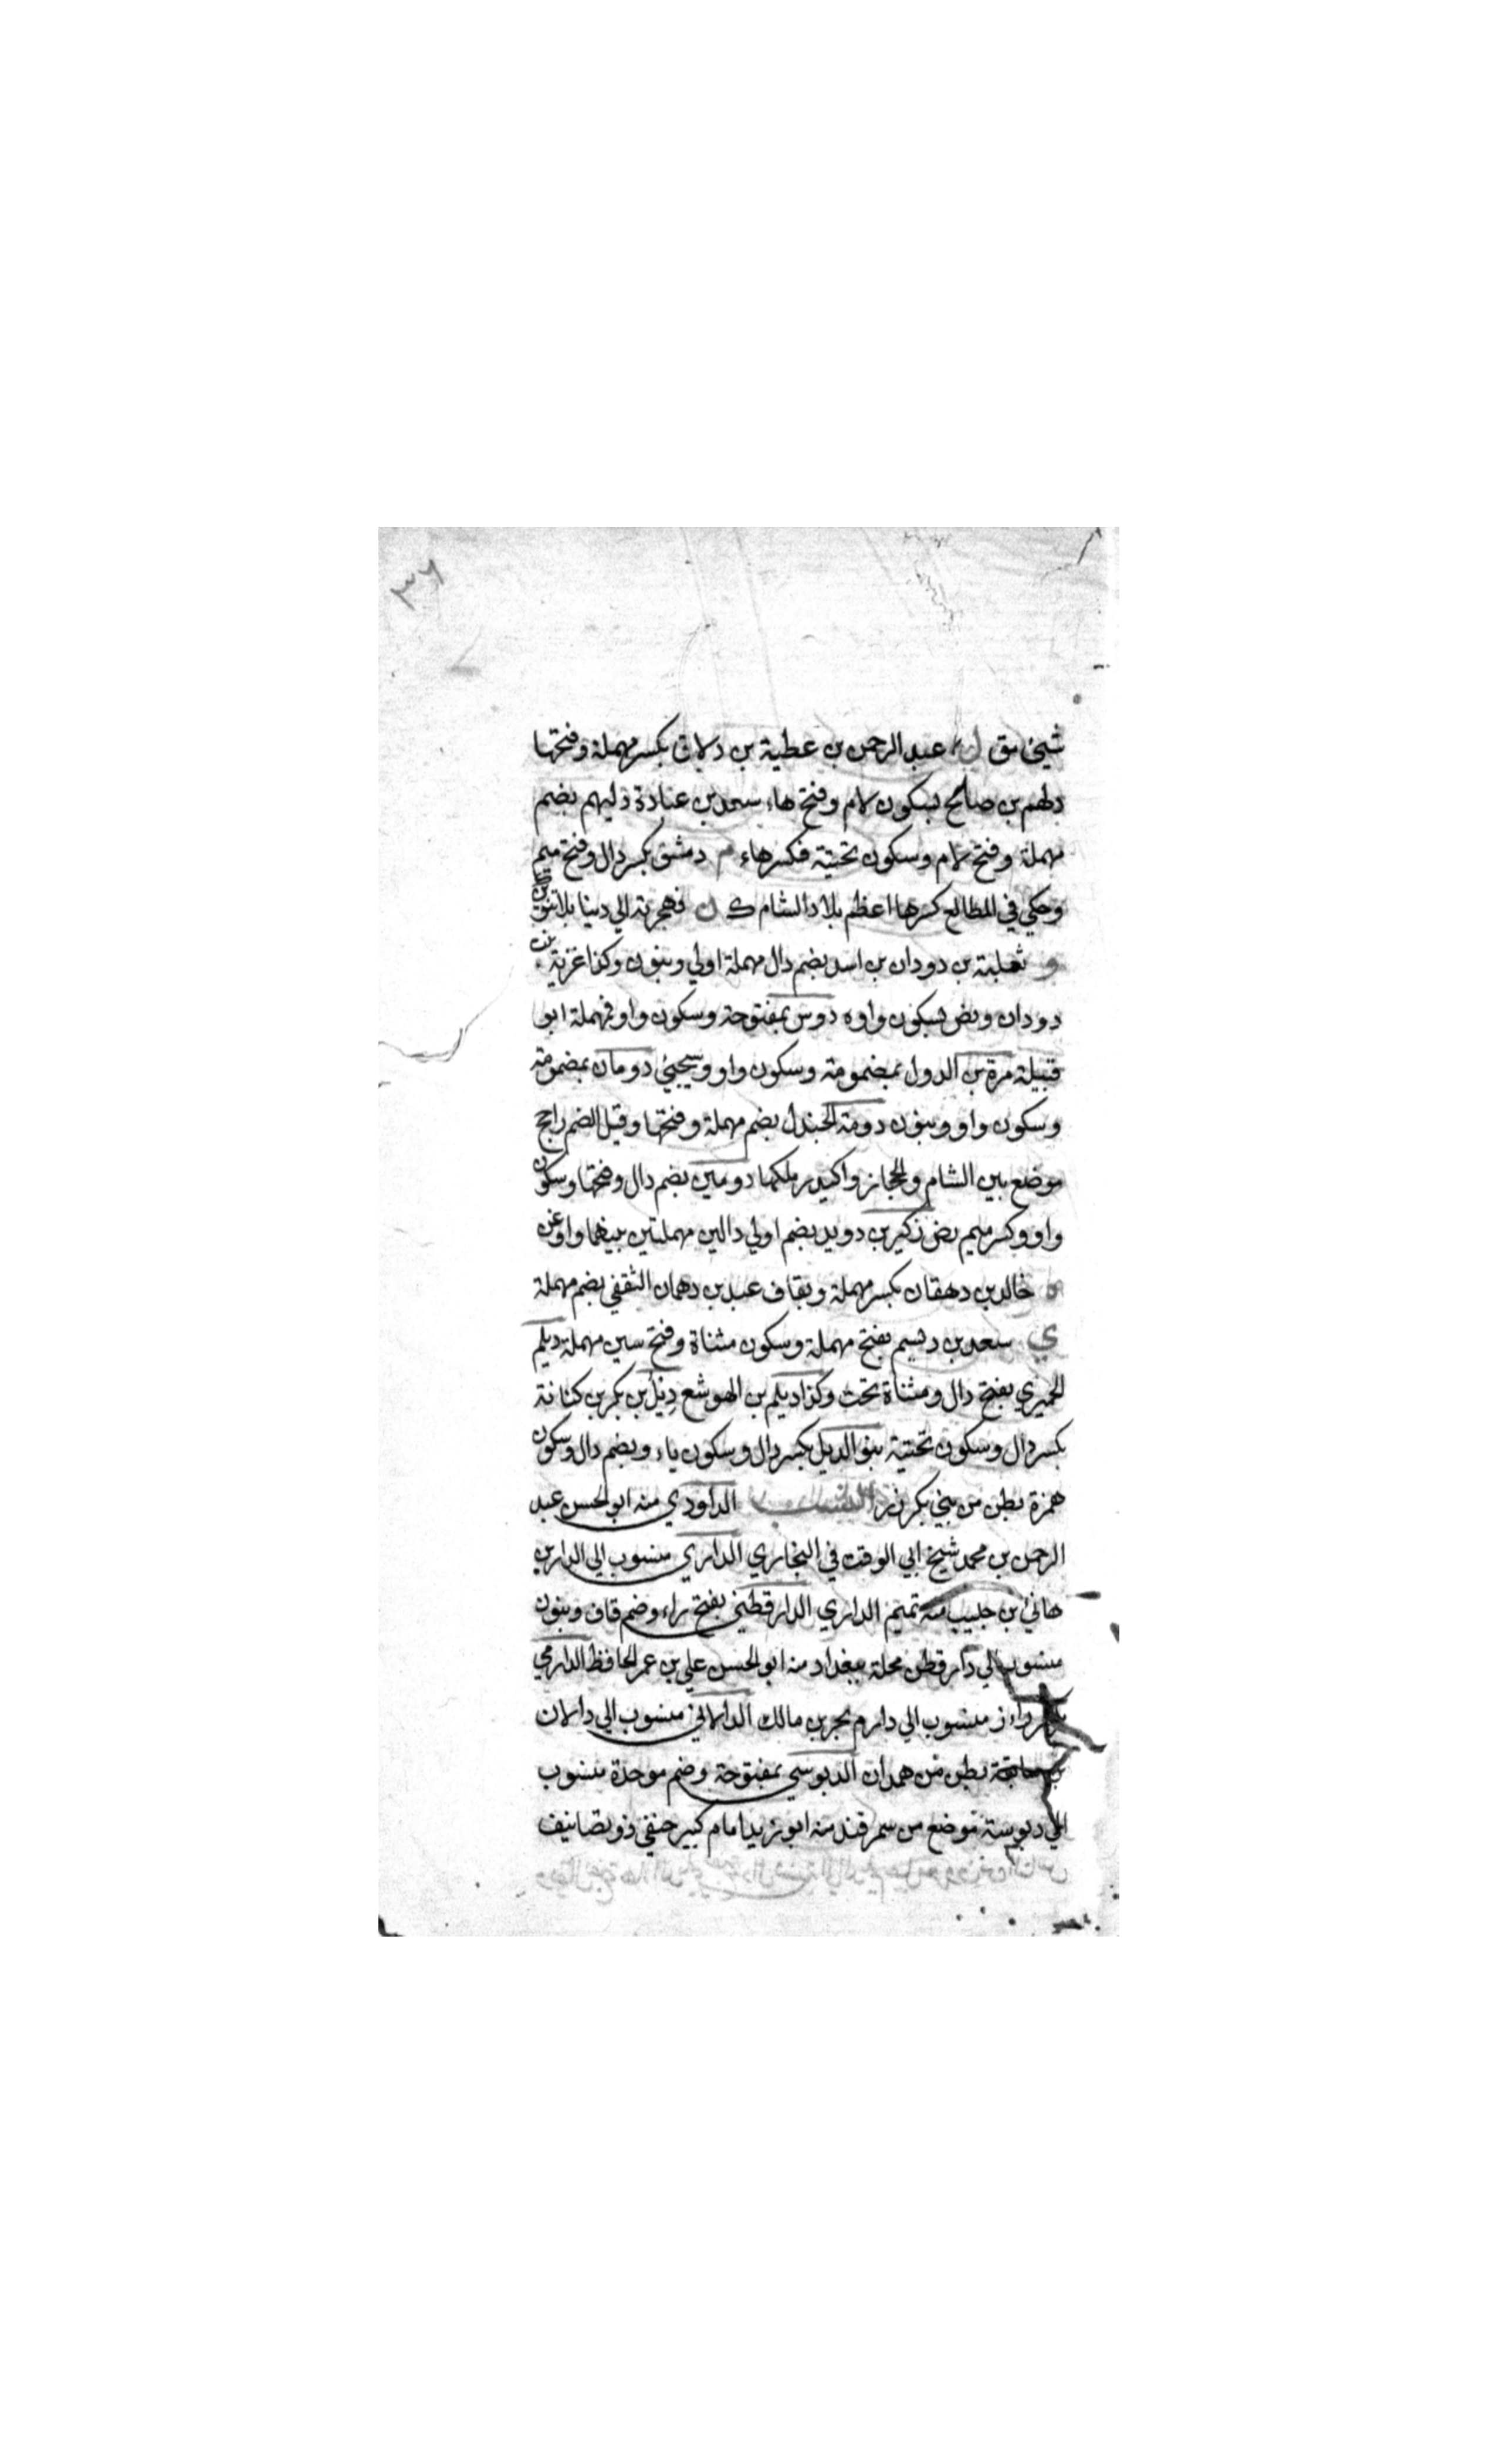 ٣٦
شيخ سق ل عبد الرحمن بن عطية بن دلاف بكسر مهملة وفتحها
دلهم بن صالح بسكون لام وفتح هاء سعد بن عبادة دليهم بضم
مهملة وفتح لام وسكون تحتية فكسر هاء م دمشق بكسر دال وفتح ميم
وحكي في المطالع كسرها اعظم بلاد الشام ك ن فهجرته الي دينا بلا تنوين
و ثعلبة بن دودان بن اسد بضم دال مهملة اولي وبنون وكذا غزية بنت
دودان ونض بسكون واوه دوس بمفتوحة وسكون واو فمهملة ابو
قبيلة مرة بن الدول بمضمومة وسكون واو وسيجيئ دومان بمضمومة
وسكون واو وبنون دومة الجندل بضم مهملة وفتحها وقيل الضم راجح
موضع بين الشام والحجاز واكيدر ملكها دومين بضم دال وفتحها وسكون
واو وكسر ميم نض زكير بن دويد بضم اولي دالين مهملتين بينهما واو عن
ه خالد بن دهقان بكسر مهملة وبقاف عبد بن دهمان الثقفي بضم مهملة
ي سعد بن دهيسم بفتح مهملة وسكون مثناة وفتح سين مهملة ديلم
الحميري بفتح دال ومثناة تحت وكذا ديلم بن الهوشع ديل بن بكر بن كنانة
بكسر دال وسكون تحتية بنو الديل بكسر دال وسكون ياء وبضم دال وسكون
همزة بطن من بني بكر زر النسب الداودي منه ابو الحسن عبد
الرحمن بن محمد شيخ ابي الوقت في البخاري الداري منسوب الي الدار بن
هانئ بن حبيب منه تميم الداري الدارقطني بفتح راء وضم قاف وبنون
منسوب الي دار قطن محلة ببغداد منه ابو الحسن علي بن عمر الحافظ الدارمي
بكسر راء ز منسوب الي دارم بحر بن مالك الدالاني منسوب الي دالان
بن بطن من همدان الدبوسي بمفتوحة وضم موحدة منسوب
الي دبوسة موضع من سمرقند منه ابو زيد امام كبير حنفي ذو تصانيف